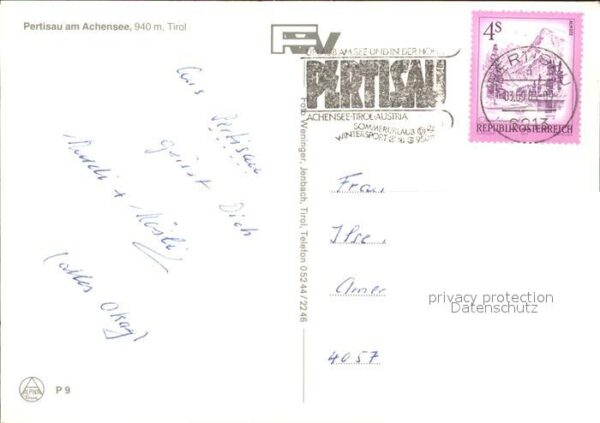 Pertisau am Achensee, 940 m, Tirol
Aus Pertisau
grüsst Dich
Ruedi + Rösli
(alles Okay)
P 9
Foto Weninger, Jenbach, Tirol, Telefon 05244/2246
URLAUB AM SEE UND IN DER HÖH
PERTISAU
ACHENSEE-TIROL-AUSTRIA
SOMMERURLAUB
WINTERSPORT
4S
ALMSEE
REPUBLIK ÖSTERREICH
PERTISAU
6213
Frau
Ilse
Amer
4057
privacy protection
Persönlichkeitsschutz